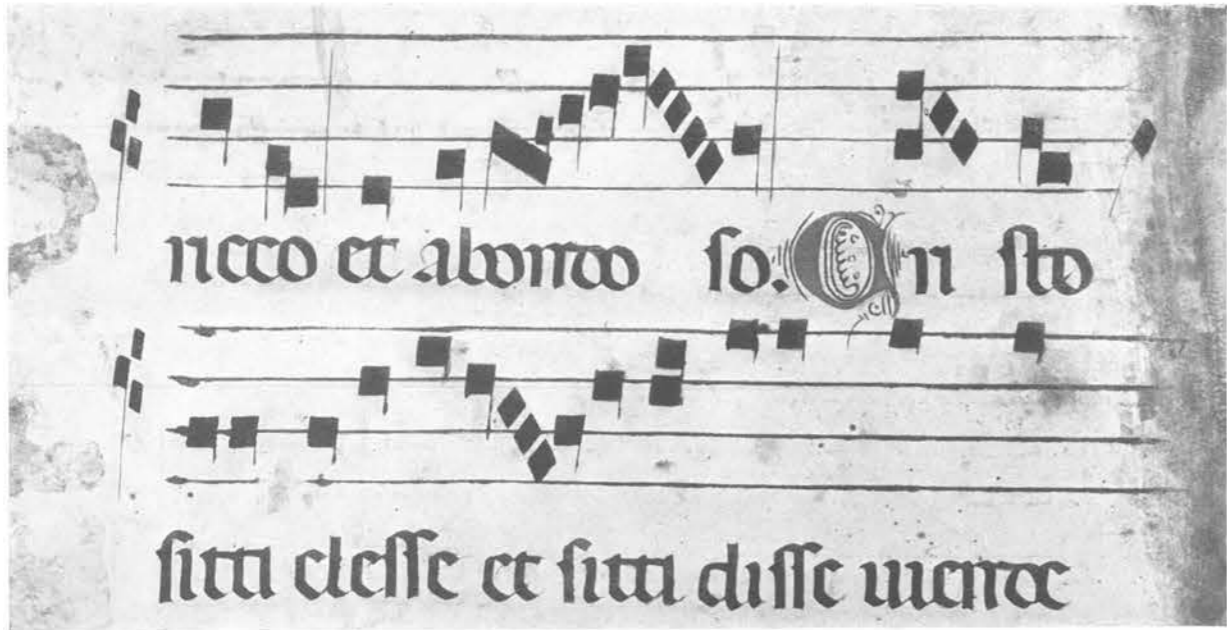 ricco et abondo so. Cri sto
sitti elesse et sitti disse uiende